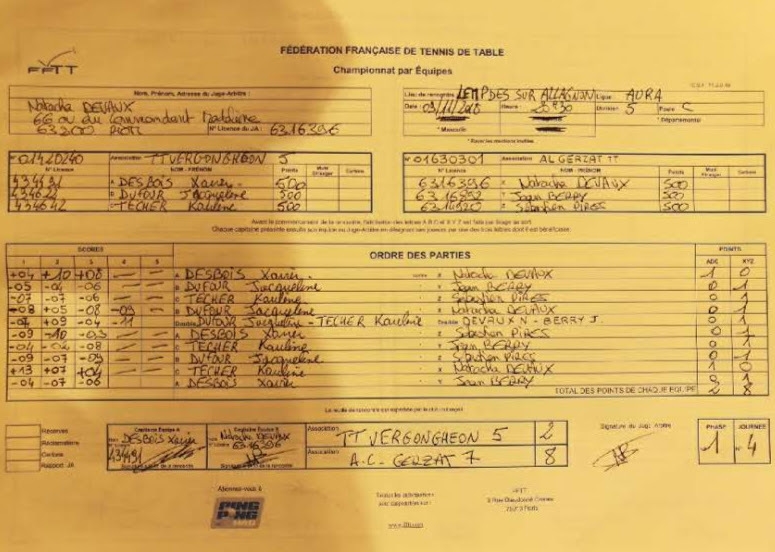 FFTT
FÉDÉRATION FRANÇAISE DE TENNIS DE TABLE
Championnat par Équipes
Nom, Prénom, Adresse du Juge-Arbitre :
Natacha DEVAUX
66
63200
N° Licence du JA : 6316396
Lieu de rencontre LEMPDES SUR ALLAGNON Ligue AURA
Date : 09/11/2018 Heure : 20H30 Division 5 Poule C
* Masculin * Départemental
* Rayer les mentions inutiles
N° 01420240 Association TT VERGONGHEON 5
N° Licence NOM - PRÉNOM Points Muté Etranger Cartons
434491 A DESBOIS Xavier 500
434622 B DUFOUR Jacqueline 500
434642 C TECHER Kauline 500
N° 01630301 Association AL GERZAT TT
N° Licence NOM - PRÉNOM Points Muté Etranger Cartons
6316396 X Natacha DEVAUX 500
Y Jean BERRY 500
6314920 Z Sébastien PIRES 500
SCORES ORDRE DES PARTIES POINTS
1 2 3 4 5 ABC XYZ
+04 +10 +08 — — A DESBOIS Xavier contre X Natacha DEVAUX 1 0
-05 -04 -06 — — B DUFOUR Jacqueline Y Jean BERRY 0 1
-07 -07 -06 — — C TECHER Kauline Z Sébastien PIRES 0 1
-08 +05 -08 -09 — B DUFOUR Jacqueline X Natacha DEVAUX 0 1
+09 -04 -11 Double DUFOUR Jacqueline - TECHER Kauline Double DEVAUX N - BERRY J. 0 1
-09 -10 -03 — — A DESBOIS Xavier Z Sébastien PIRES 0 1
-04 -04 -08 — — C TECHER Kauline Y Jean BERRY 0 1
-09 -07 -09 — — B DUFOUR Jacqueline Z Sébastien PIRES 0 1
+13 +07 +04 — — C TECHER Kauline X Natacha DEVAUX 1 0
-04 -07 -06 — — A DESBOIS Xavier Y Jean BERRY 0 1
TOTAL DES POINTS DE CHAQUE EQUIPE 2 8
Réserves
Réclamations
Cartons
Rapport JA
Capitaine Equipe A
DESBOIS Xavier
434491
Capitaine Equipe B
Natacha DEVAUX
6316396
Association TT VERGONGHEON 5 2
Association A.C. GERZAT 7 8
Signature du Juge Arbitre
PHASE JOURNEE
1 4
Abonnez-vous à
PING PONG
FFTT
3 Rue Dieudonné Costes
75013 Paris
www.fftt.com